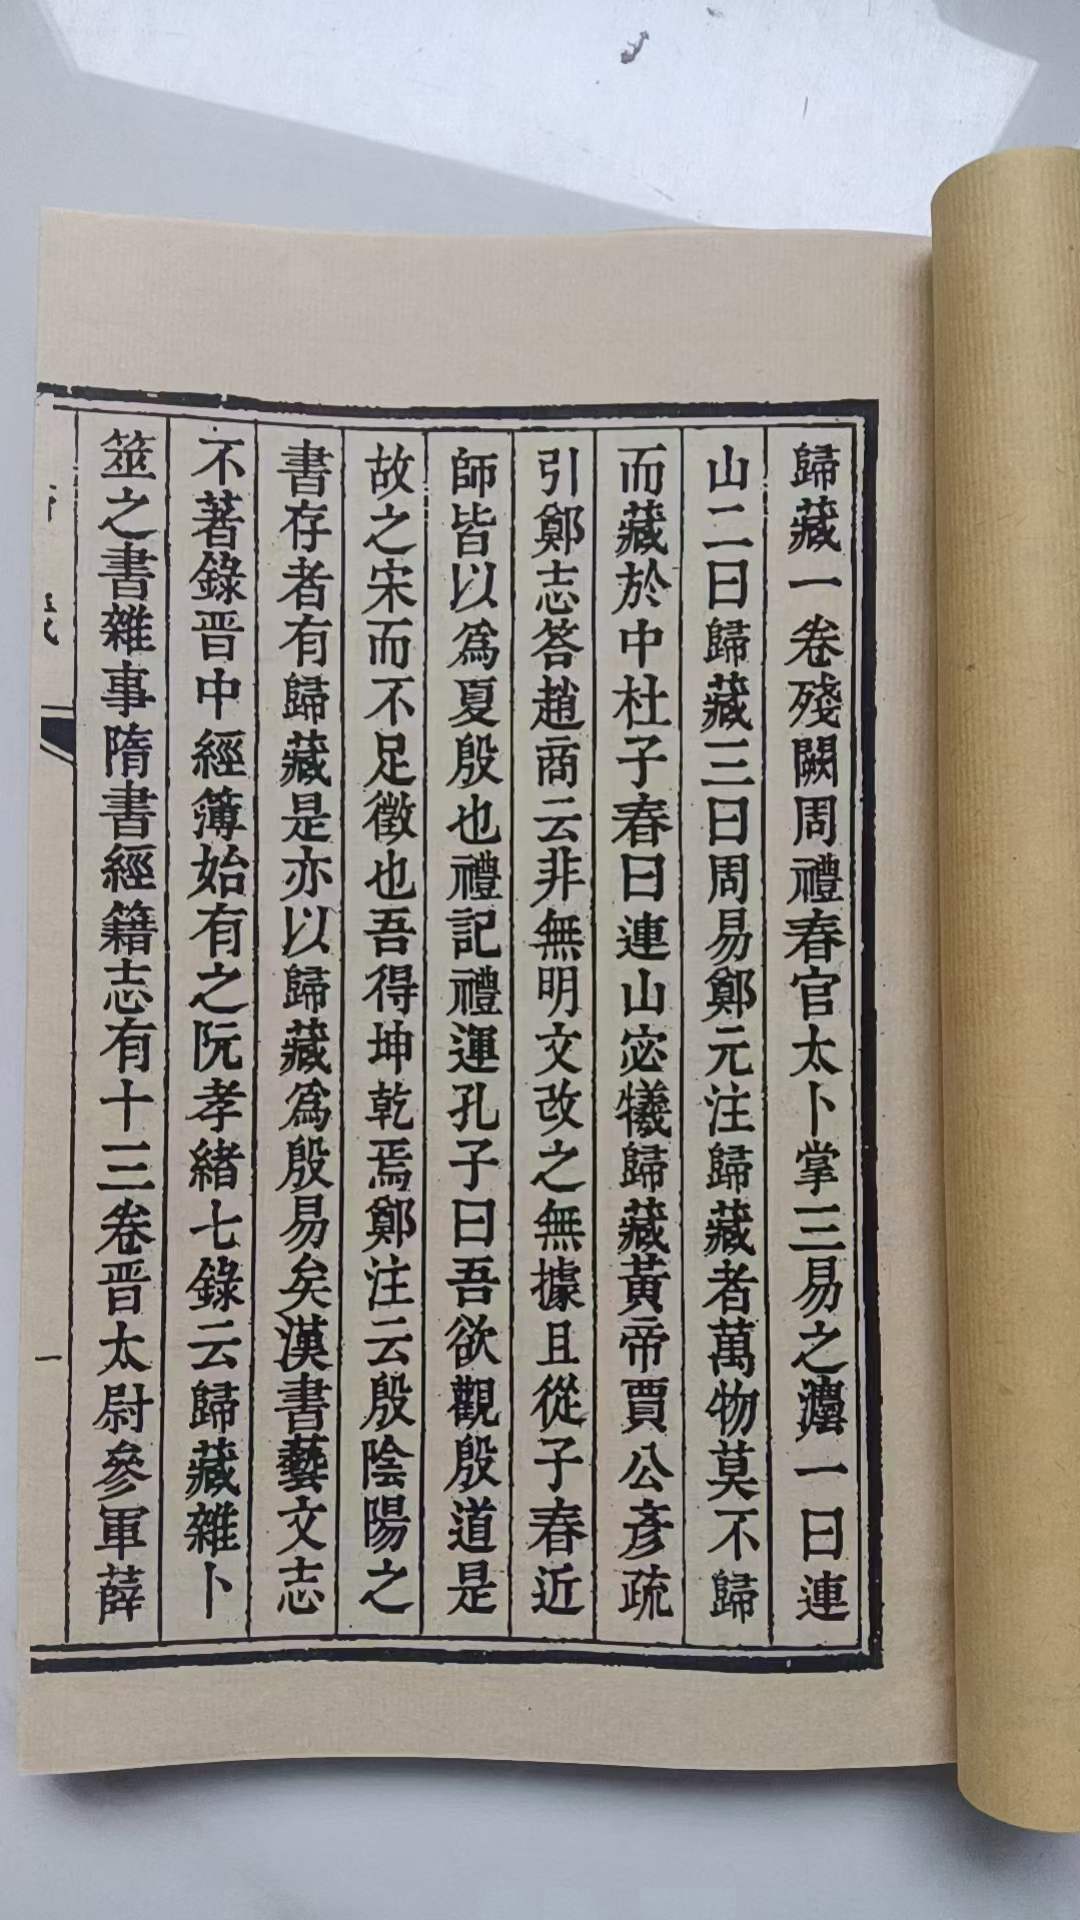 歸藏一卷殘闕周禮春官太卜掌三易之灋一曰連
山二曰歸藏三曰周易鄭元注歸藏者萬物莫不歸
而藏於中杜子春曰連山宓犧歸藏黃帝賈公彥疏
引鄭志答趙商云非無明文改之無據且從子春近
師皆以爲夏殷也禮記禮運孔子曰吾欲觀殷道是
故之宋而不足徵也吾得坤乾焉鄭注云殷陰陽之
書存者有歸藏是亦以歸藏爲殷易矣漢書藝文志
不著錄晋中經簿始有之阮孝緒七錄云歸藏雜卜
筮之書雜事隋書經籍志有十三卷晋太尉參軍薛
一